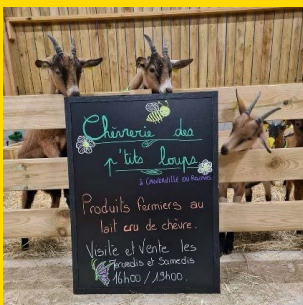 Chèvrerie des
p'tits loups
à Gouderville en Rainnes
Produits fermiers au
lait cru de chèvre.
Visite et Vente les
Mercredis et Samedis
16h00 / 19h00.